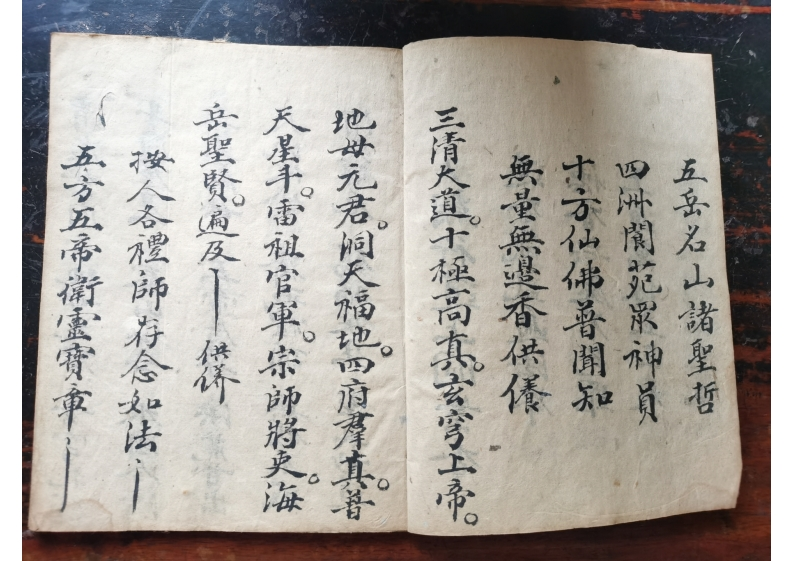 五岳名山諸聖哲
四洲閬苑眾神員
十方仙佛普聞知
無量無邊香供養
三清大道。十極高真。玄穹上帝。
地母元君。洞天福地。四府羣真。普
天星斗。雷祖官軍。宗師將吏。海
岳聖賢。遍及 供
按人各禮師存念如法
五方五帝衛靈寶章